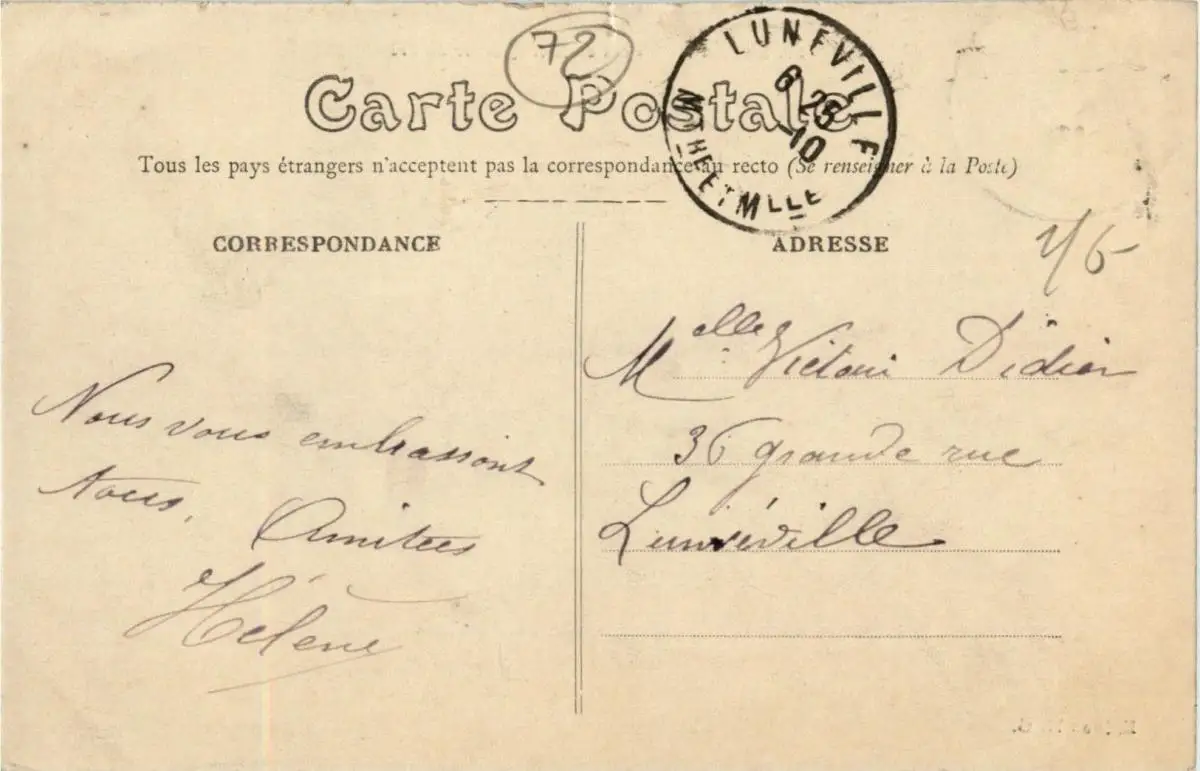 72
Carte Postale
LUNÉVILLE
6 25
10
MTHE ET MLLE
Tous les pays étrangers n'acceptent pas la correspondance au recto (Se renseigner à la Poste)
CORRESPONDANCE
ADRESSE
Melle Victoire Didier
36 grande rue
Lunéville
Nous vous embrassont
tous. Amitees
Hélène